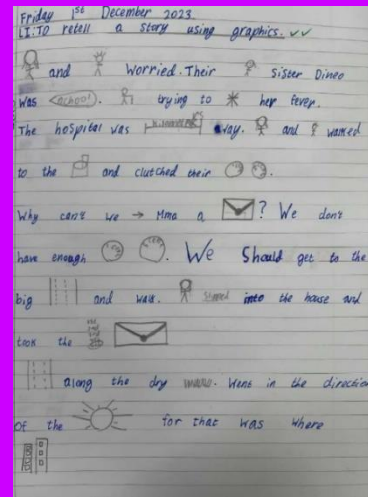 Friday 1st December 2023
LI: TO retell a story using graphics.
and Worried. Their Sister Dineo
was (achoo!). trying to her fever.
The hospital was way. and walked
to the and clutched their
Why can't we → Mma a ? We don't
have enough . We Should get to the
big and wait. into the house and
took the
along the dry . Went in the direction
OF the for that was where